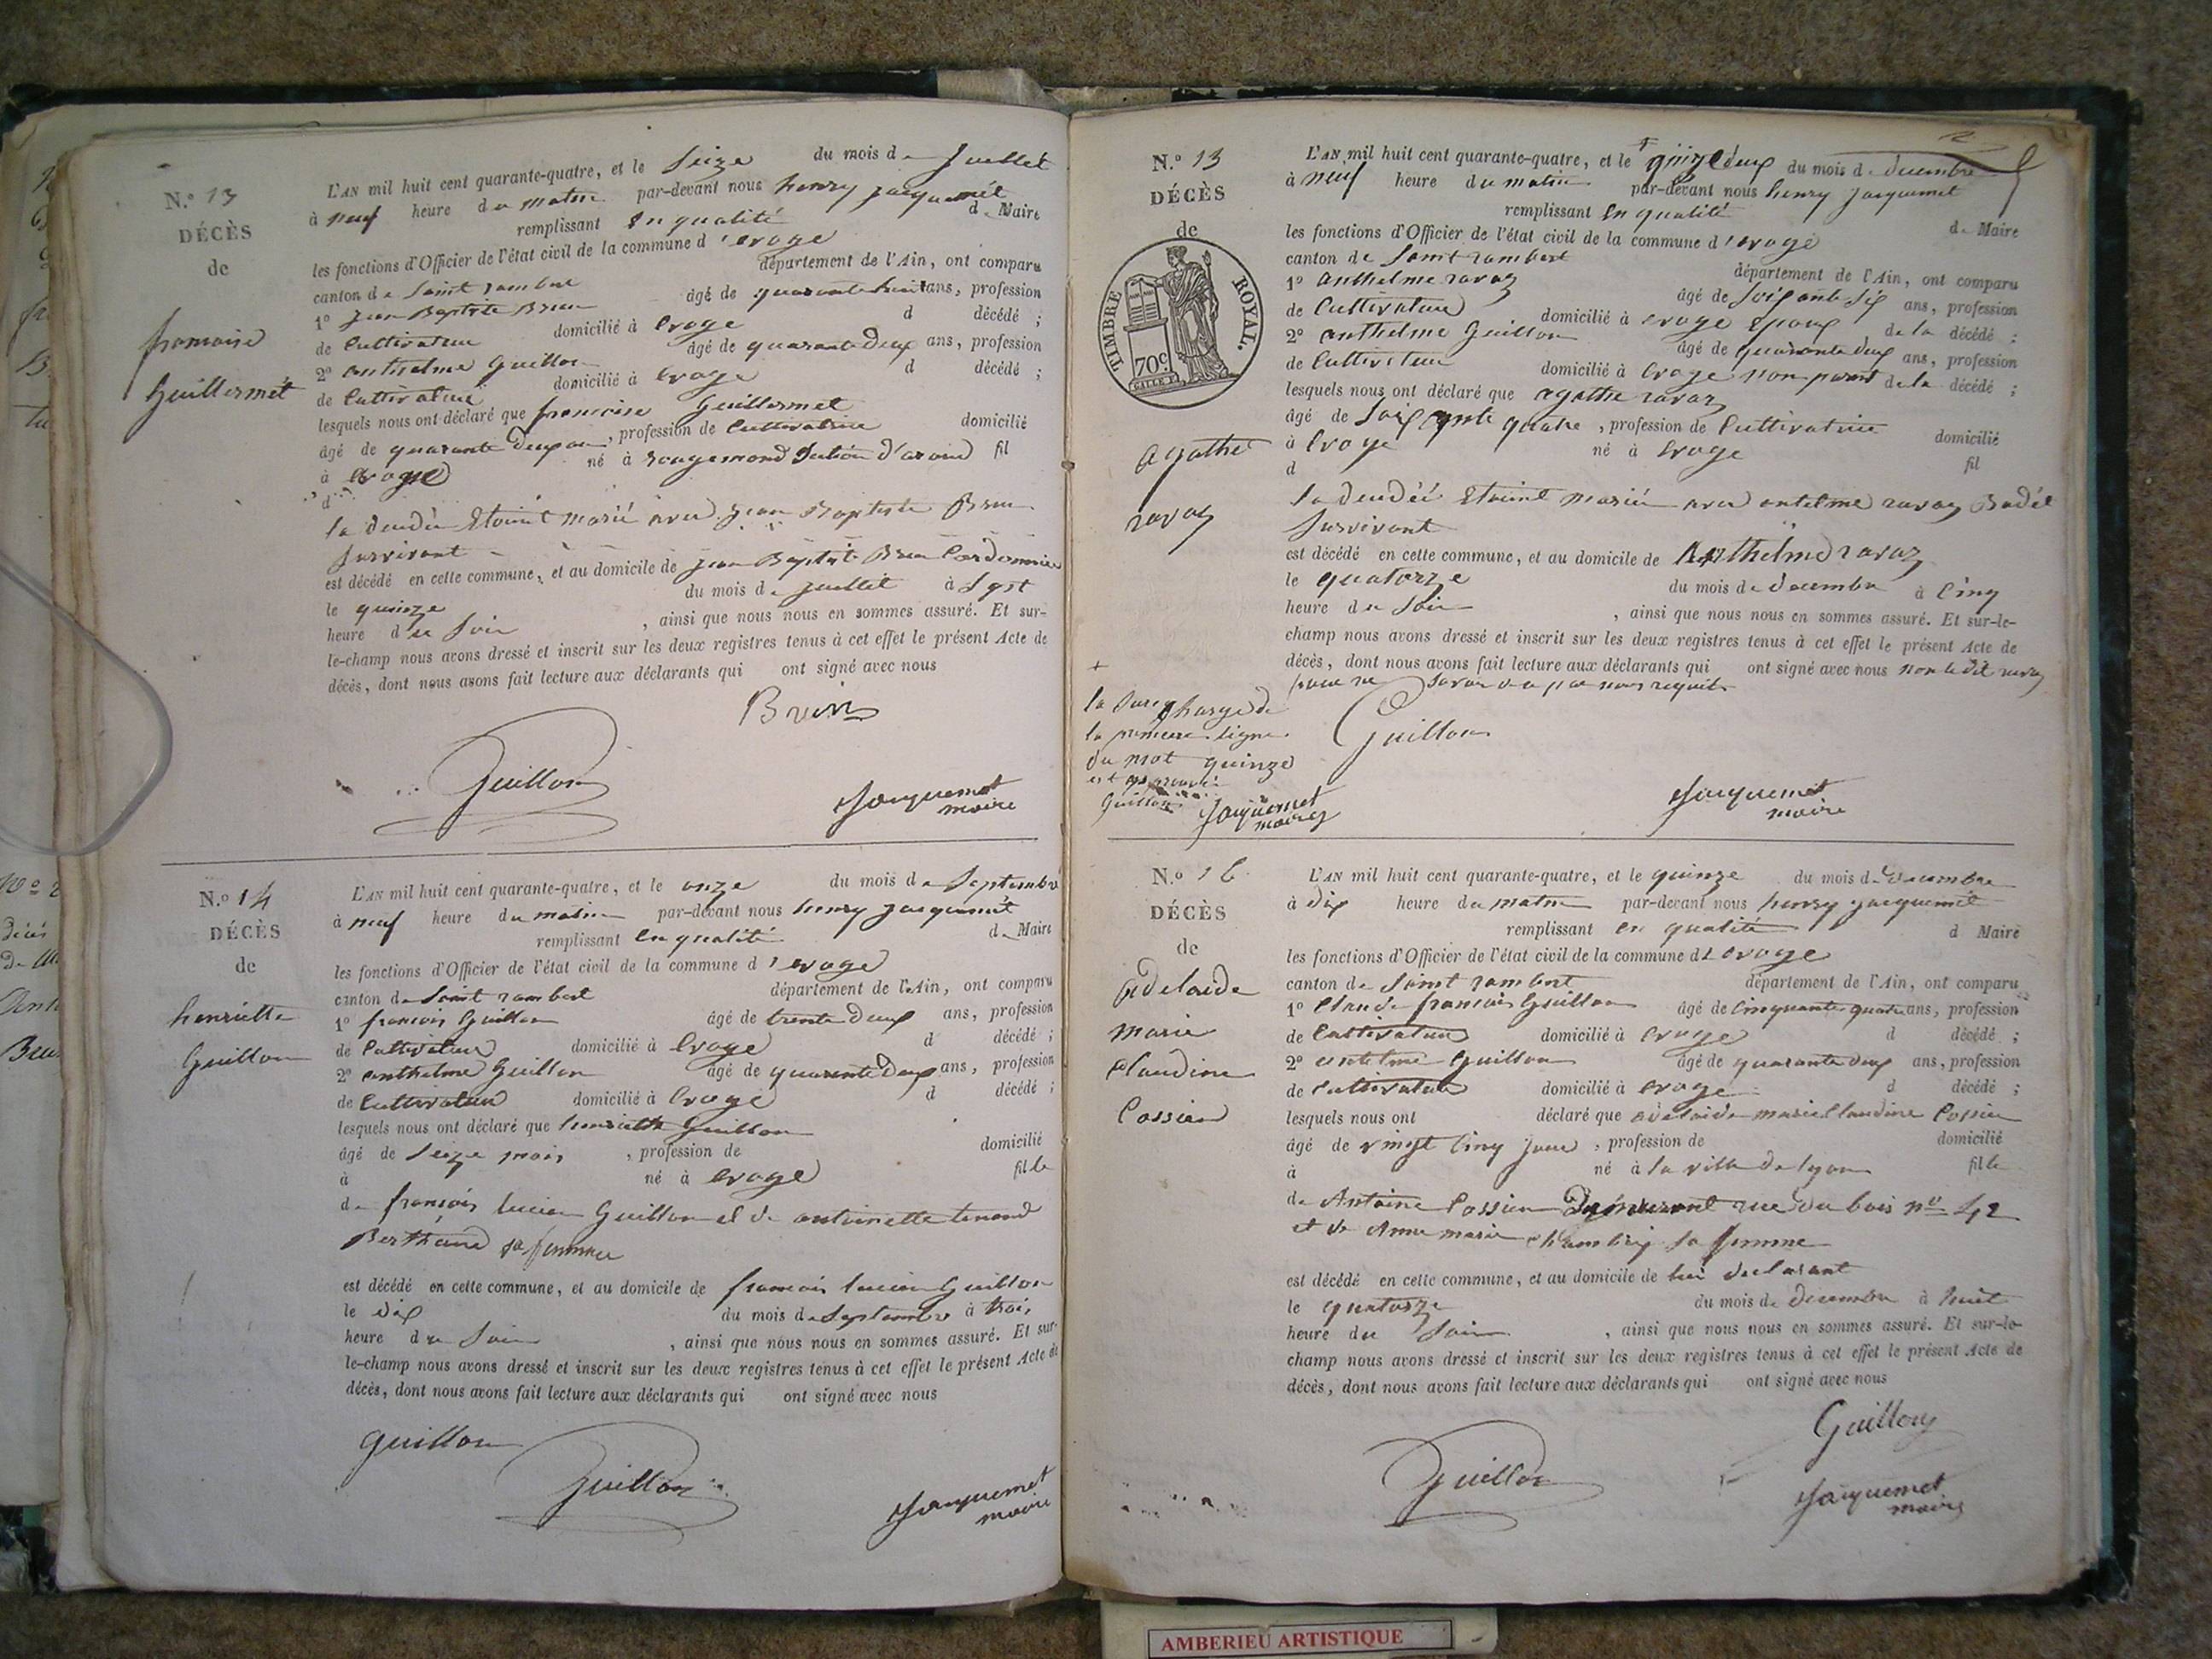 N.º 13
DÉCÈS
de
francoise
Guillermet
L'AN mil huit cent quarante-quatre, et le Seize du mois de Juillet
à neuf heure du matin par-devant nous henry jacquemét
remplissant en qualité de Maire
les fonctions d'Officier de l'état civil de la commune d'evoge
canton de Saint rambert département de l'Ain, ont comparu
1º jean Baptiste Brun âgé de quarante huit ans, profession
de Cultivateur domicilié à Evoge d décédé ;
2º anthelme Guillon âgé de quarante deux ans, profession
de Cultivateur domicilié à Evoge d décédé ;
lesquels nous ont déclaré que francoise Guillermet
âgé de quarante deux ans, profession de Cultivatrice domicilié
à Evoge né à rougemond fil
d
la décédée Etoint marié avec jean Baptiste Brun
Survivant
est décédé en cette commune, et au domicile de jean Baptiste Brun Cordonnier
le quinze du mois de juillet à Sept
heure du Soir , ainsi que nous nous en sommes assuré. Et sur-
le-champ nous avons dressé et inscrit sur les deux registres tenus à cet effet le présent Acte de
décès, dont nous avons fait lecture aux déclarants qui ont signé avec nous
Brun
Guillon
Jacquemet
maire
N.º 14
DÉCÈS
de
henriette
Guillon
L'AN mil huit cent quarante-quatre, et le onze du mois de Septembre
à neuf heure du matin par-devant nous henry jacquemét
remplissant en qualité de Maire
les fonctions d'Officier de l'état civil de la commune d'evoge
canton de Saint rambert département de l'Ain, ont comparu
1º francois Guillon âgé de trente deux ans, profession
de Cultivateur domicilié à Evoge d décédé ;
2º anthelme Guillon âgé de quarante deux ans, profession
de Cultivateur domicilié à Evoge d décédé ;
lesquels nous ont déclaré que henriette Guillon
âgé de Seize mois , profession de domicilié
à né à evoge fille
de francois lucien Guillon et de antoinette tenand
Berthand sa femme
est décédé en cette commune, et au domicile de francois lucien Guillon
le dix du mois de Septembre à trois
heure du Soir , ainsi que nous nous en sommes assuré. Et sur-
le-champ nous avons dressé et inscrit sur les deux registres tenus à cet effet le présent Acte de
décès, dont nous avons fait lecture aux déclarants qui ont signé avec nous
Guillon
Guillon
Jacquemet
maire
N.º 13
DÉCÈS
de
TIMBRE ROYAL.
70c.
agathe
ravaz
L'AN mil huit cent quarante-quatre, et le quinze du mois de decembre
à neuf heure du matin par-devant nous henry jacquemet
remplissant en qualité de Maire
les fonctions d'Officier de l'état civil de la commune d'evoge
canton de Saint rambert département de l'Ain, ont comparu
1º anthelme ravaz âgé de Soixante Six ans, profession
de Cultivateur domicilié à evoge Epoux de la décédé ;
2º anthelme Guillon âgé de quarante deux ans, profession
de Cultivateur domicilié à Evoge non parent de la décédé ;
lesquels nous ont déclaré que agathe ravaz
âgé de Soixante quatre , profession de Cultivatrice domicilié
à Evoge né à Evoge fil
d
la décédéé Etoint mariée avec antelme ravaz Badél
Survivant
est décédé en cette commune, et au domicile de Anthelme ravaz
le quatorze du mois de decembre à Cinq
heure du Soir , ainsi que nous nous en sommes assuré. Et sur-le-
champ nous avons dressé et inscrit sur les deux registres tenus à cet effet le présent Acte de
décès, dont nous avons fait lecture aux déclarants qui ont signé avec nous non le dit ravaz
pour ne Savoir de ce par nous requit
+
la Surcharge de
la premiere ligne
du mot quinze
est approuvé
Guillon
Jacquemet
maire
Guillon
Jacquemet
maire
N.º 16
DÉCÈS
de
adelaide
marie
claudine
Cossien
L'AN mil huit cent quarante-quatre, et le quinze du mois de decembre
à dix heure du matin par-devant nous henry jacquemet
remplissant en qualité d Maire
les fonctions d'Officier de l'état civil de la commune d'Evoge
canton de Saint rambert département de l'Ain, ont comparu
1º Claude francois Guillon âgé de cinquante quatre ans, profession
de Cultivateur domicilié à evoge d décédé ;
2º antelme Guillon âgé de quarante deux ans, profession
de Cultivateur domicilié à evoge d décédé ;
lesquels nous ont déclaré que adelaide marie Claudine Cossien
âgé de vingt Cinq jours , profession de domicilié
à né à la ville de lyon fille
de Antoine Cossien Demeurant rue du bois nº 42
et de Anne marie Chambry sa femme
est décédé en cette commune, et au domicile de lui declarant
le quatorze du mois de decembre à huit
heure du Soir , ainsi que nous nous en sommes assuré. Et sur-le-
champ nous avons dressé et inscrit sur les deux registres tenus à cet effet le présent Acte de
décès, dont nous avons fait lecture aux déclarants qui ont signé avec nous
Guillon
Guillon
Jacquemet
maire
AMBERIEU ARTISTIQUE